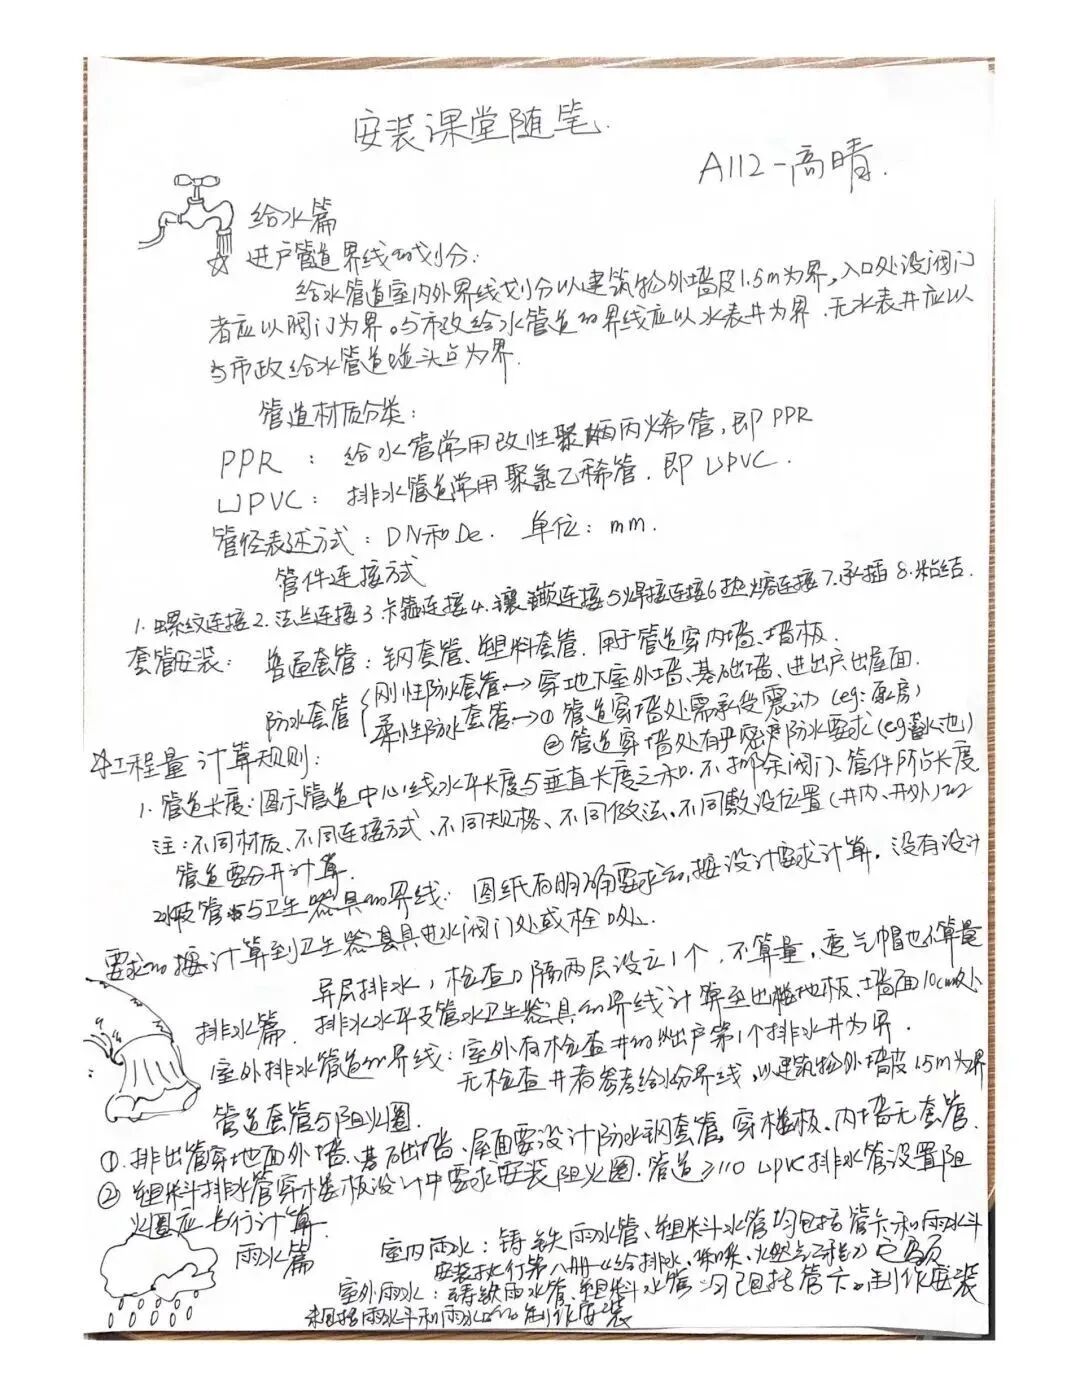 安装课堂随笔.
A112-高晴.
给水篇
进户管道界线的划分.
给水管道室内外界线划分以建筑物外墙皮1.5m为界,入口处设阀门
者应以阀门为界。与市政给水管道的界线应以水表井为界.无水表井应以
与市政给水管道碰头点为界.
管道材质分类:
PPR : 给水管常用改性聚丙烯管,即PPR
UPVC: 排水管道常用聚氯乙稀管.即UPVC.
管径表述方式:DN和De. 单位:mm.
管件连接方式
1.螺纹连接2.法兰连接3.卡箍连接4.锁连接5焊接连接6热熔连接7.承插8.粘结.
套管安装: 普通套管:钢套管、塑料套管.用于管道穿内墙、墙板.
防水套管 刚性防水套管→穿地下室外墙、基础墙、进出户出屋面.
柔性防水套管→①管道穿墙处需承受震动(eg:泵房)
②管道穿墙处有严密防水要求(eg蓄水池)
工程量计算规则:
1.管道长度:图示管道中心线水平长度与垂直长度之和.不扣除阀门、管件所占长度
注:不同材质、不同连接方式、不同规格、不同做法、不同敷设位置(井内、井外)的
管道要分开计算.
2水支管与卫生器具的界线:图纸有明确要求的,按设计要求计算.没有设计
要求的按计算到卫生器具进水阀门处或栓口处.
异层排水,检查口隔两层设立1个.不算量,透气帽也不算量
排水篇. 排水水平支管水卫生器具的界线计算至出楼地板、墙面10cm处
室外排水管道的界线:室外有检查井的出户第1个排水井为界.
无检查井者参考给水的界线,以建筑物外墙皮1.5m为界
管道套管与阻火圈.
①.排出管穿地面外墙、基础墙、屋面要设计防水钢套管,穿楼板、内墙无套管.
②塑料排水管穿楼板设计中要求安装阻火圈.管道≥110 UPVC排水管设置阻
火圈应另行计算.
雨水篇 室内雨水:铸铁雨水管、塑料水管均包括管卡和雨水斗
安装执行第八册《给排水、采暖、燃气工程》定额
室外雨水:铸铁雨水管、塑料水管均已包括管卡。制作安装
未包括雨水斗和雨水口的制作安装